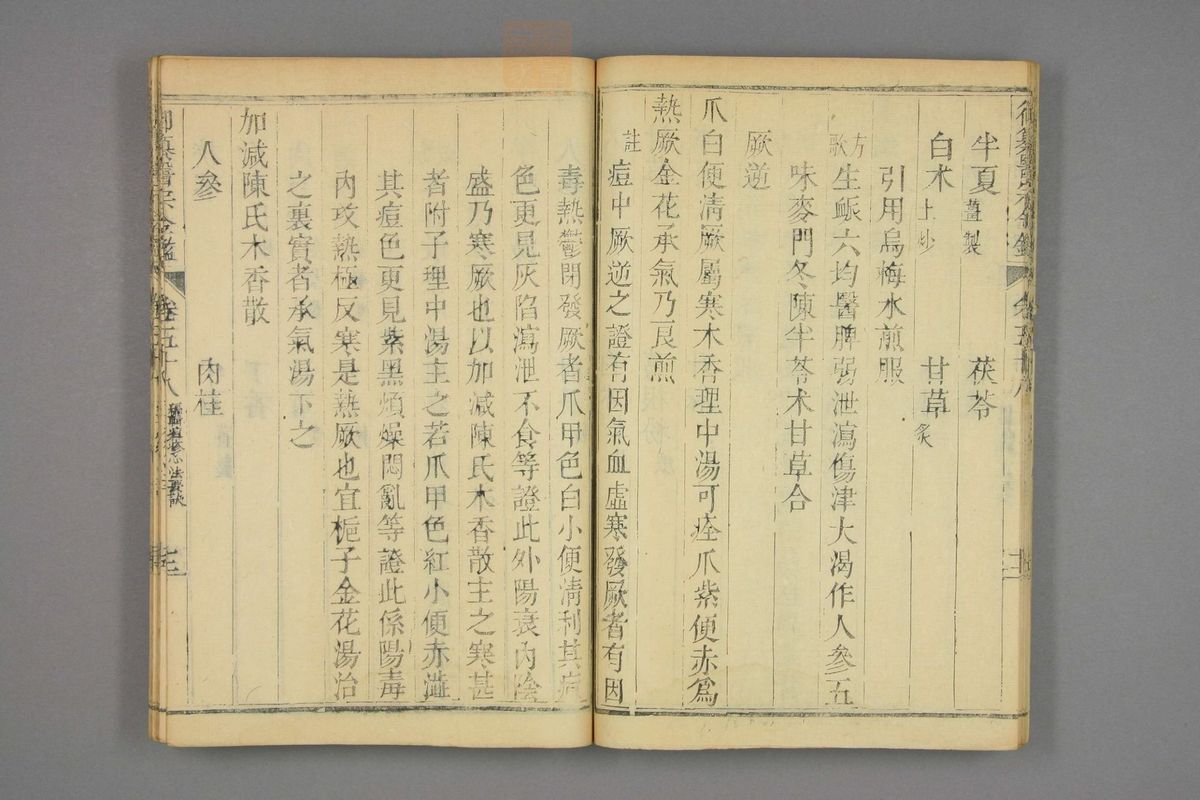 半夏薑製　茯苓
白朮土炒　甘草炙
引用烏梅水煎服
方歌生脈六均醫脾弱泄瀉傷津大渴作人參五
味麥門冬陳半苓朮甘草合
厥逆
爪白便清厥屬寒木香理中湯可痊爪紫便赤爲
熱厥金花承氣乃良煎
註痘中厥逆之證有因氣血虛寒發厥者有因
毒熱鬱閉發厥者爪甲色白小便清利其痘
色更見灰陷瀉泄不食等證此外陽衰內陰
盛乃寒厥也以加減陳氏木香散主之寒甚
者附子理中湯主之若爪甲色紅小便赤澁
其痘色更見紫黑煩燥悶亂等證此係陽毒
內攻熱極反寒是熱厥也宜梔子金花湯治
之裏實者承氣湯下之
加減陳氏木香散
人參　肉桂
御纂醫宗金鑑　卷五十八